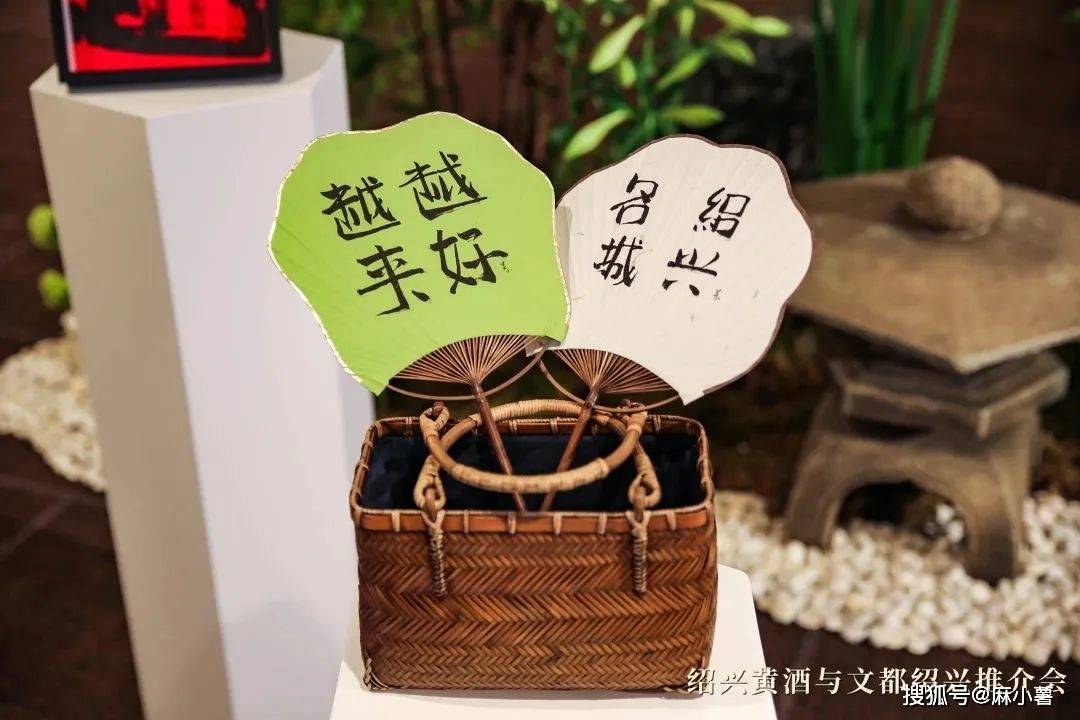 越来
越好
紹兴
名城
绍兴黄酒与文都绍兴推介会
搜狐号@麻小薯